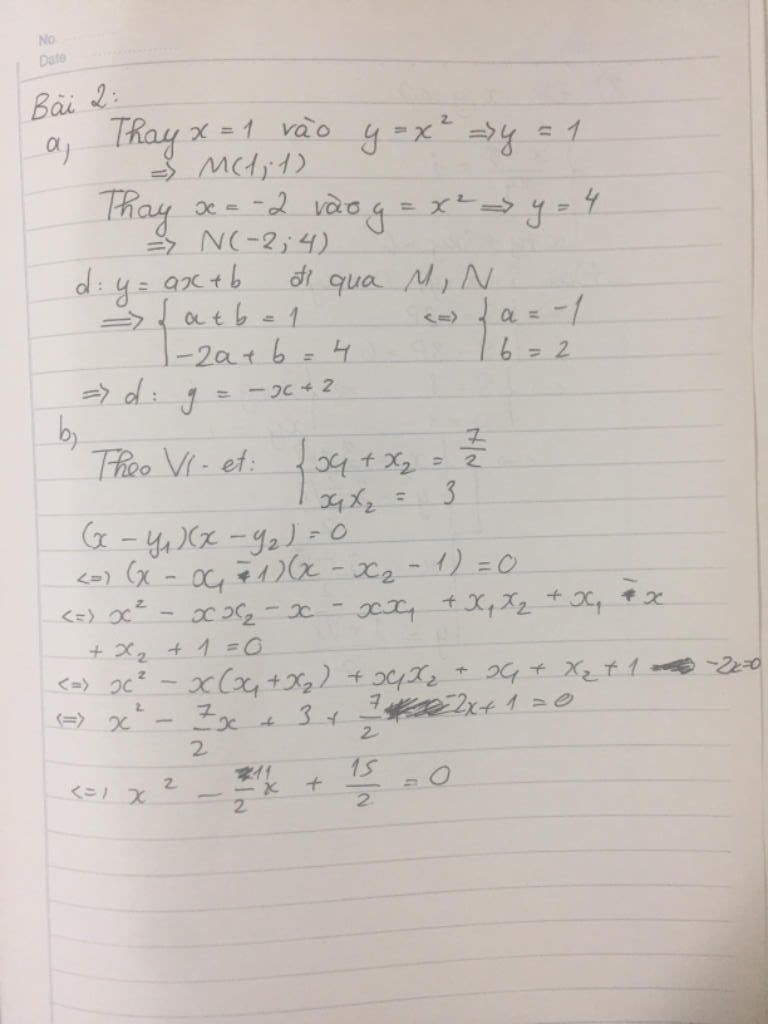 No.
Date
Bài 2:
a, Thay x = 1 vào y = x² => y = 1
=> M(1; 1)
Thay x = -2 vào y = x² => y = 4
=> N(-2; 4)
d: y = ax + b đi qua M, N
=> { a + b = 1 <=> { a = -1
-2a + b = 4 b = 2
=> d: y = -x + 2
b,
Theo Vi-et: { x₁ + x₂ = 7/2
x₁x₂ = 3
(x - y₁)(x - y₂) = 0
<=> (x - x₁ - 1)(x - x₂ - 1) = 0
<=> x² - xx₂ - x - xx₁ + x₁x₂ + x₁ - x
+ x₂ + 1 = 0
<=> x² - x(x₁ + x₂) + x₁x₂ + x₁ + x₂ + 1 - 2x = 0
<=> x² - 7/2 x + 3 + 7/2 - 2x + 1 = 0
<=> x² - 11/2 x + 15/2 = 0